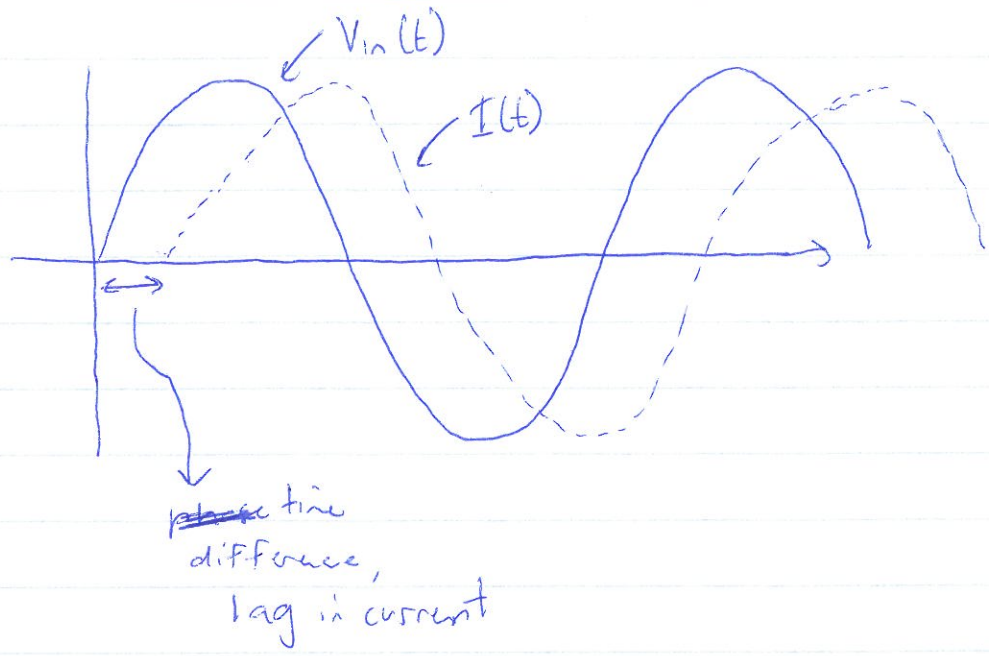 Vin(t)
I(t)
phase time
difference,
lag in current